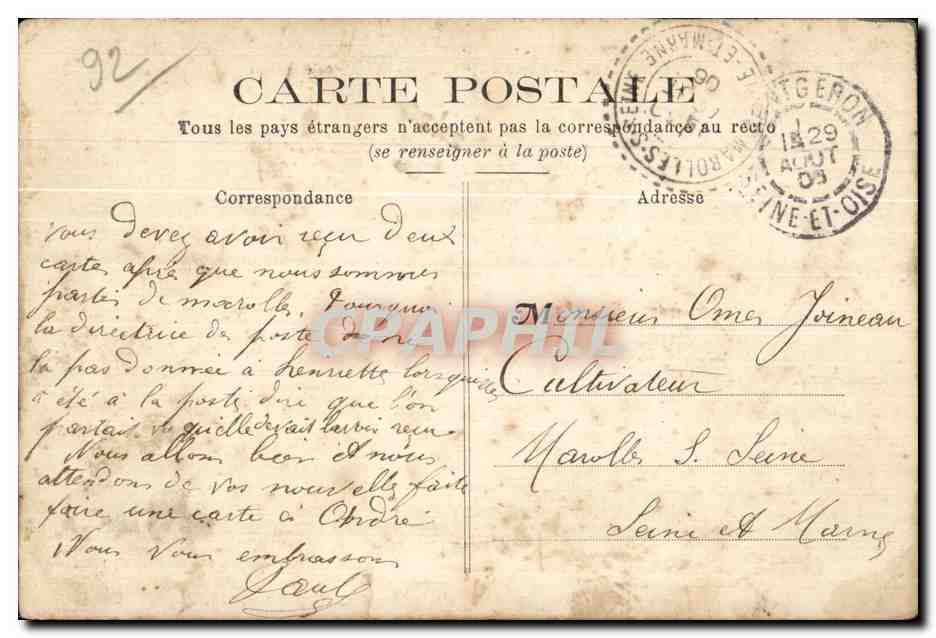 92
CARTE POSTALE
Tous les pays étrangers n'acceptent pas la correspondance au recto
(se renseigner à la poste)
MAROLLES-S-SEINE
ET-MARNE
06
MONTGERON
1E 29
AOUT
05
SEINE-ET-OISE
Correspondance
vous devez avoir reçu deux
cartes aprè que nous sommes
partis de marolles. Pourquoi
la directrice des poste
la pas donnée à henriette lorsquelles
a été a la poste dire que l'on
partait qu'elle devait l'avoir reçu
Nous allons bien et nous
attendons de vos nouvelles faite
faire une carte à André
Nous vous embrassons
Paul
Adresse
Monsieur Omer Joineau
Cultivateur
Marolles S. Seine
Seine et Marne
CPAPHIL